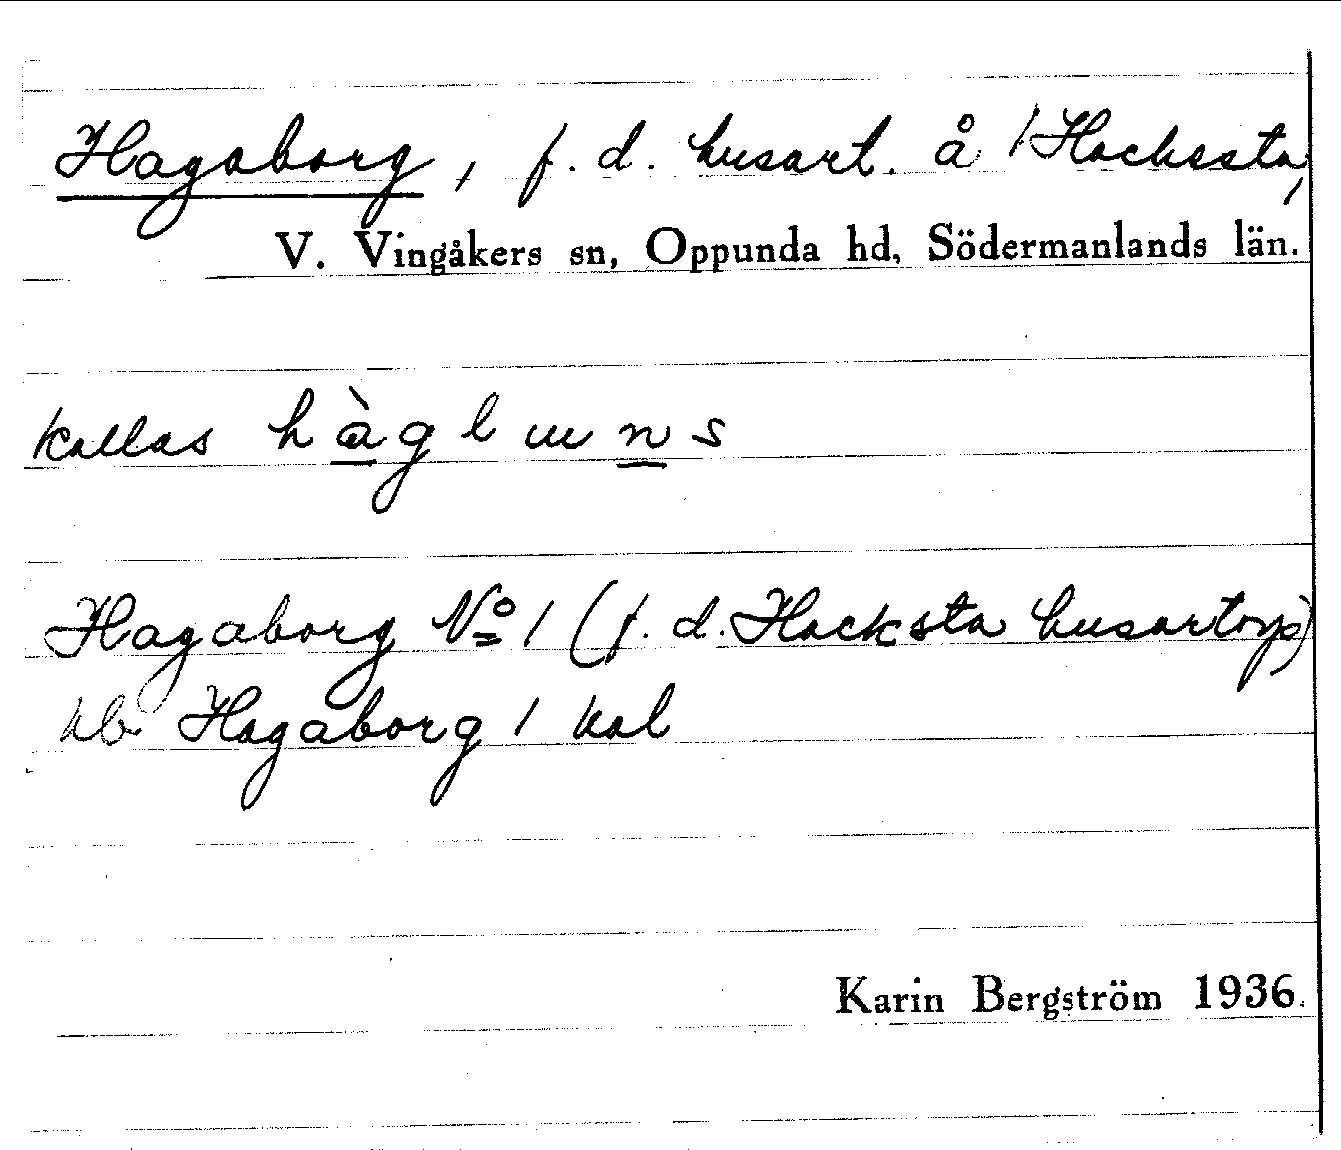 Hagaborg, f.d. husart. å 1 Hacksta,
V. Vingåkers sn, Oppunda hd, Södermanlands län.
kallas hàgluns
Hagaborg No 1 (f.d. Hacksta husartorp)
hb Hagaborg 1 kol
Karin Bergström 1936.